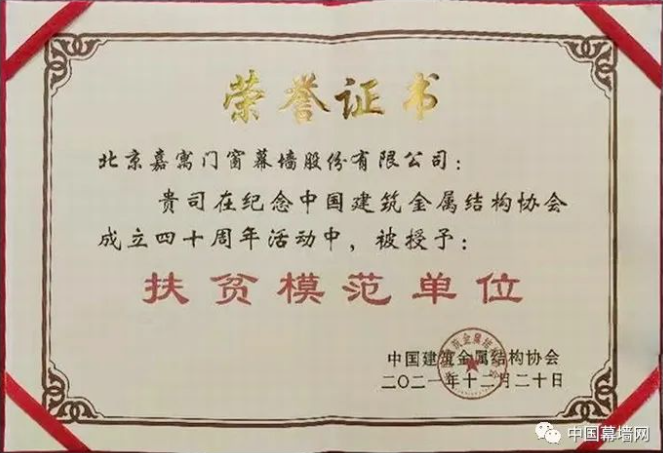 荣誉证书
北京嘉寓门窗幕墙股份有限公司：
贵司在纪念中国建筑金属结构协会
成立四十周年活动中，被授予：
扶贫模范单位
中国建筑金属结构协会
二〇二一年十二月二十日
中国幕墙网